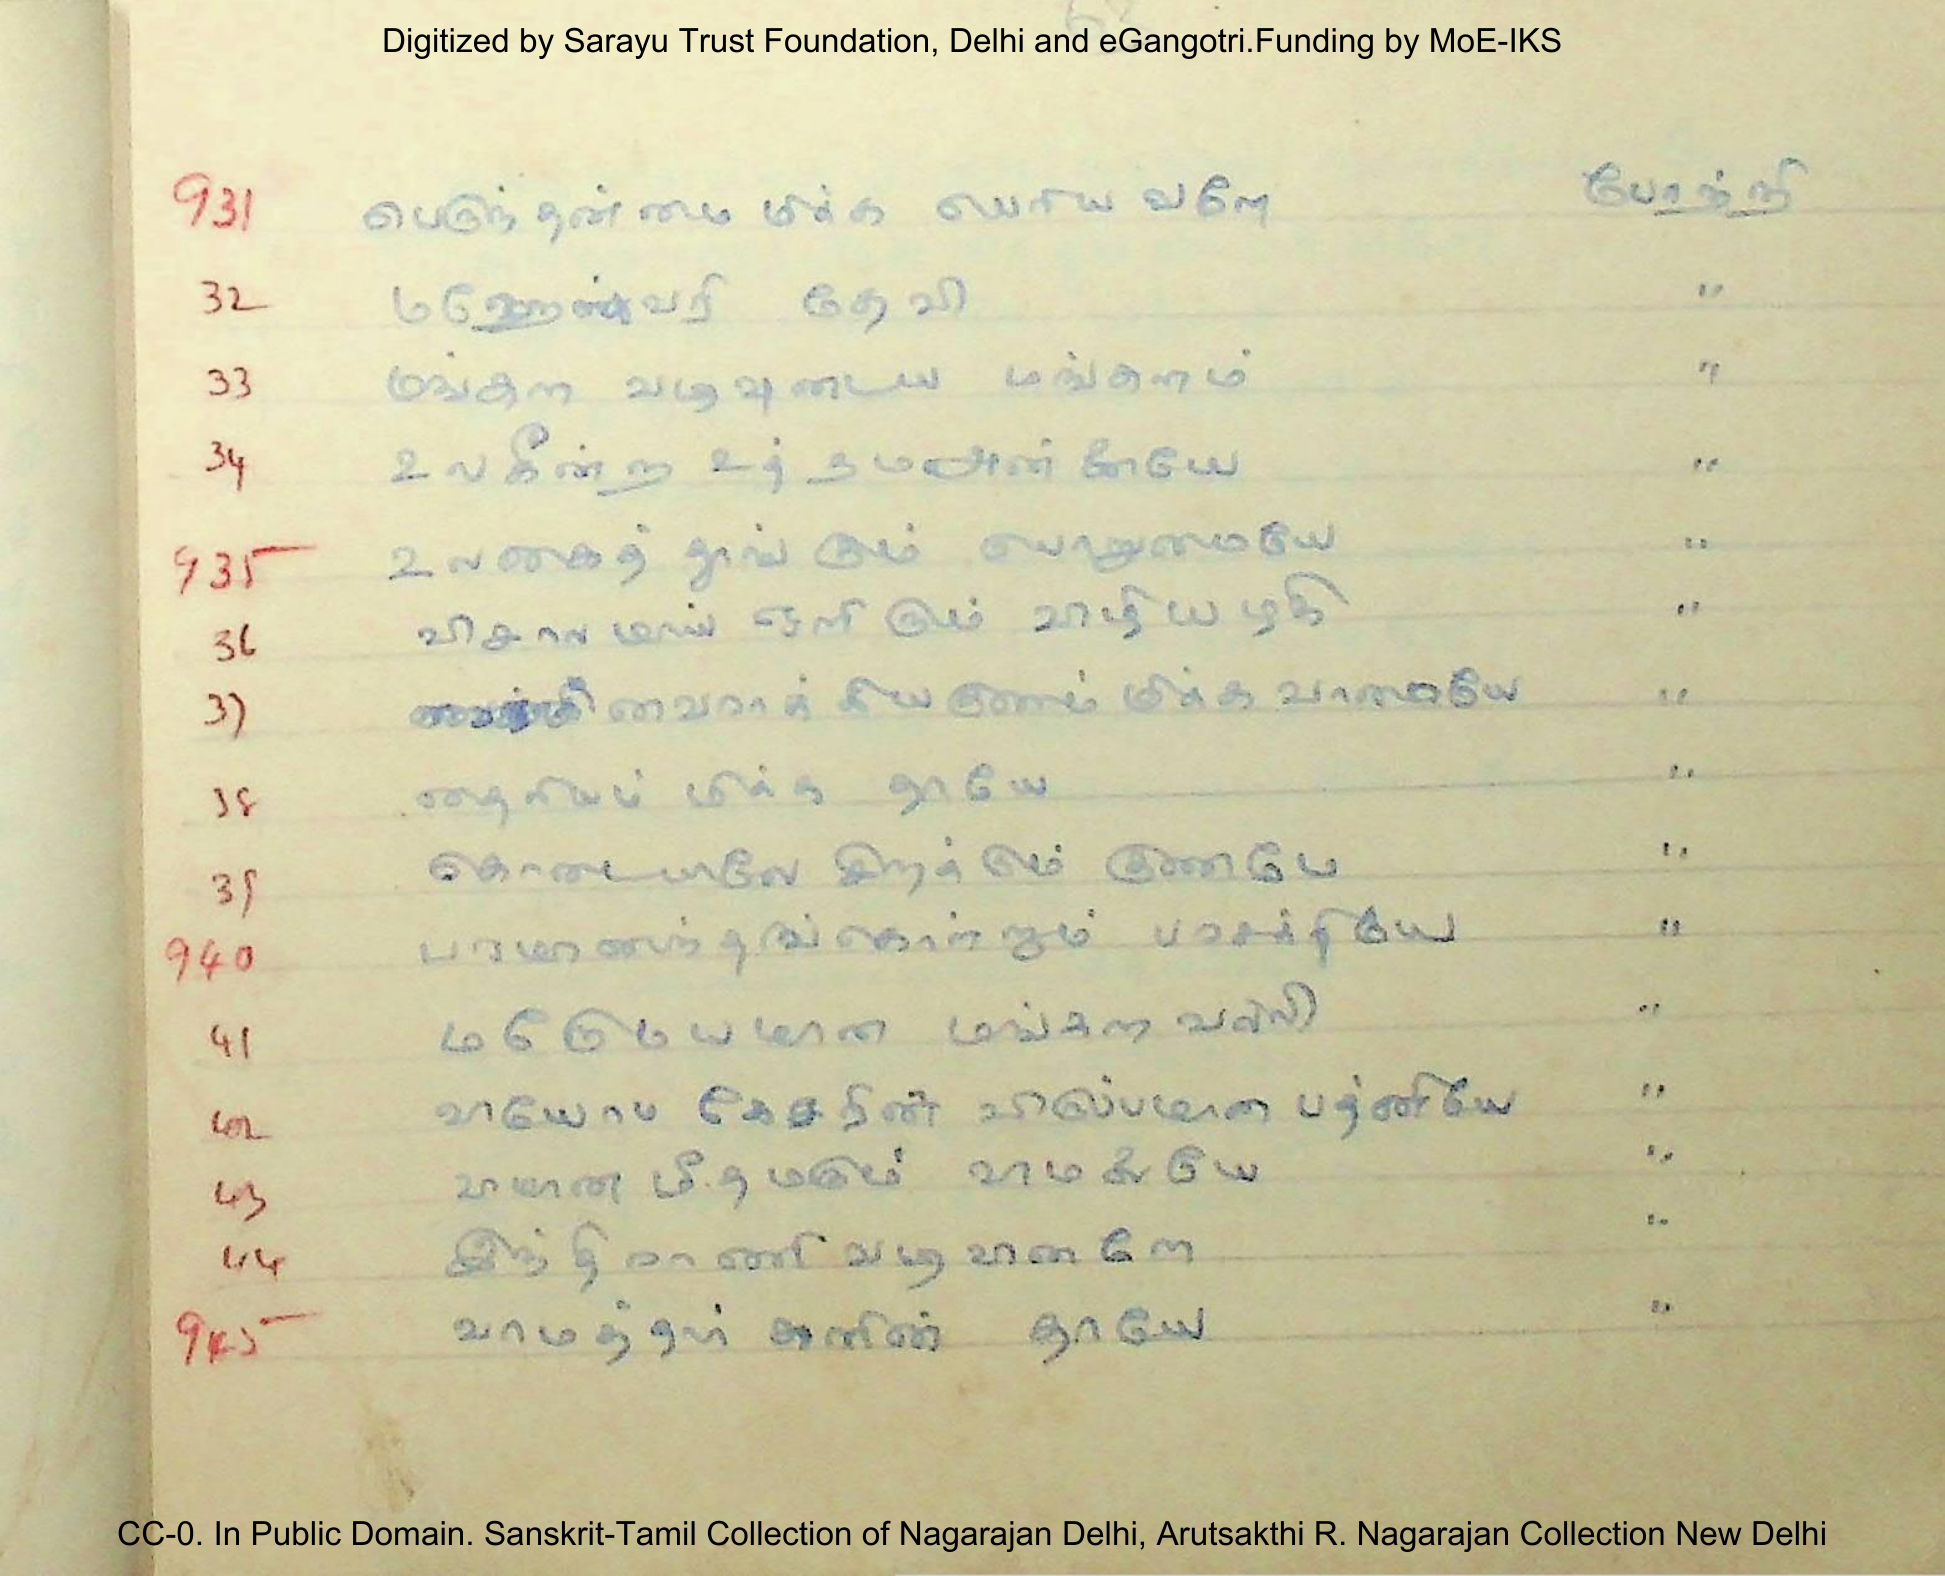 Digitized by Sarayu Trust Foundation, Delhi and eGangotri.Funding by MoE-IKS
931 பெருந்தன்மை மிக்க பெரியவளே போற்றி
32 மஹேஸ்வரி தேவி "
33 மங்கள வடிவுடைய மங்களம் "
34 உலகீன்ற உத்தமஅன்னையே "
935 உலகைத் தாங்கும் பொறுமையே "
36 விசாலமாய் ஒளிரும் வாழியழகி "
37 வைராக்கியகுணம் மிக்க வாமையே "
38 தைரியம் மிக்க தாயே "
39 கொடையிலே சிறக்கும் குணமே "
940 பரமானந்தங்கொள்ளும் பரசக்தியே "
41 மகேமயமான மங்களவல்லி "
42 வியோம கேசநின் விருப்பமான பத்னியே "
43 வாமமகளே "
44 இந்திராணி வடிவானவளே "
945 வாமத்தவர்களின் தாயே "
CC-0. In Public Domain. Sanskrit-Tamil Collection of Nagarajan Delhi, Arutsakthi R. Nagarajan Collection New Delhi